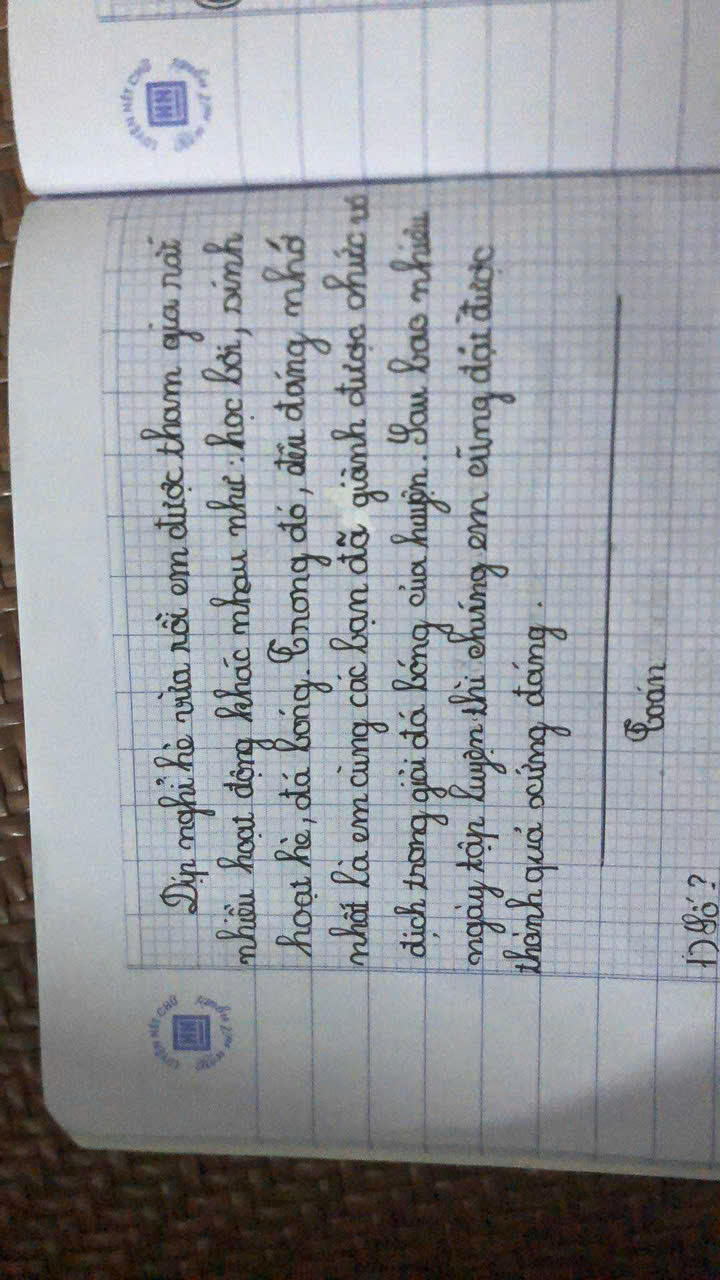 Dịp nghỉ hè vừa rồi em được tham gia rất
nhiều hoạt động khác nhau như: học bơi, sinh
hoạt hè, đá bóng. Trong đó, đều đáng nhớ
nhất là em cùng các bạn đã giành được chức vô
địch trong giải đá bóng của huyện. Sau bao nhiêu
ngày tập luyện thì chúng em cũng đạt được
thành quả xứng đáng.
Toán
1) Số?
LUYỆN NÉT CHỮ
HN
LUYỆN NÉT CHỮ
HN